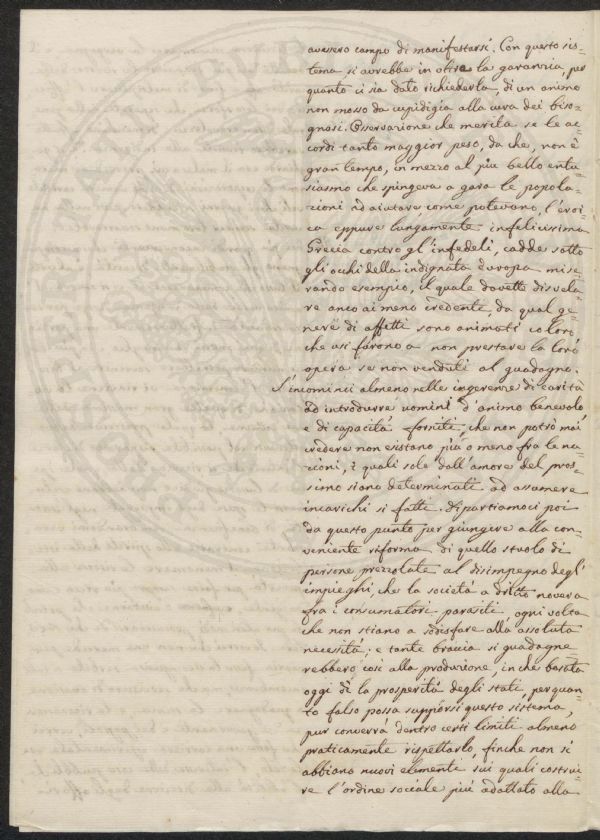 avessero campo di manifestarsi. Con questo sis=
tema si avrebbe in oltre la garanzia, per
quanto ci sia dato richiederla, di un animo
non mosso da cupidigia alla cura dei biso=
gnosi. Osservazione che merita se le ac=
cordi tanto maggior peso, da che, non è
gran tempo, in mezzo al più bello entu=
siasmo che spingeva a gara le popola=
zioni ad aiutare come potevano, l'eroi=
ca eppure lungamente infelicissima
Grecia contro gl'infedeli, cadde sotto
gli occhi della indignata Europa mise=
rando esempio, il quale dovette disvela=
re anco ai meno credenti, da qual ge=
nere di affetti sono animati coloro
che usi furono a non prestare la loro
opera se non venduti al guadagno.
S'incominci almeno nelle ingerenze di carità
ad introdurre uomini d'animo benevolo
e di capacità forniti, che non potrò mai
credere non esistano più o meno fra le na=
zioni, i quali sole dall'amore del pros=
simo siano determinati ad assumere
incarichi sì fatti. Dipartiamoci poi
da questo punto per giungere alla con=
veniente riforma di quello stuolo di
persone prezzolate al disimpegno degl'
impieghi, che la società a dritto novera
fra i consumatori parasiti ogni volta
che non stiano a sodisfare alla assoluta
necessità; e tante braccia si guadagne=
rebbero così alla produzione, in che basata
oggi è la prosperità degli stati, perquan=
to falso possa supporsi questo sistema,
pur converrà dentro certi limiti almeno
praticamente rispettarlo, finche non si
abbiano nuovi elementi sui quali costrui=
re l'ordine sociale più adattato alla